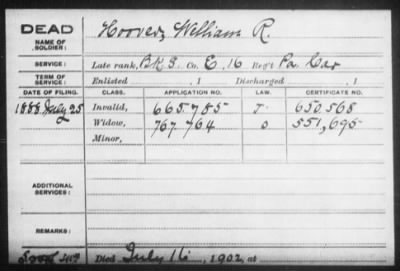 DEAD
NAME OF SOLDIER: Hoover, William R.
SERVICE: Late rank, BKS. Co. E, 16 Reg't Pa. Cav
TERM OF SERVICE: Enlisted , 1 Discharged , 1
DATE OF FILING. CLASS. APPLICATION NO. LAW. CERTIFICATE NO.
1888 July 25 Invalid, 665785 J. 650,568
Widow, 767764 O 551,695
Minor,
ADDITIONAL SERVICES:
REMARKS:
Died July 16, 1902, at